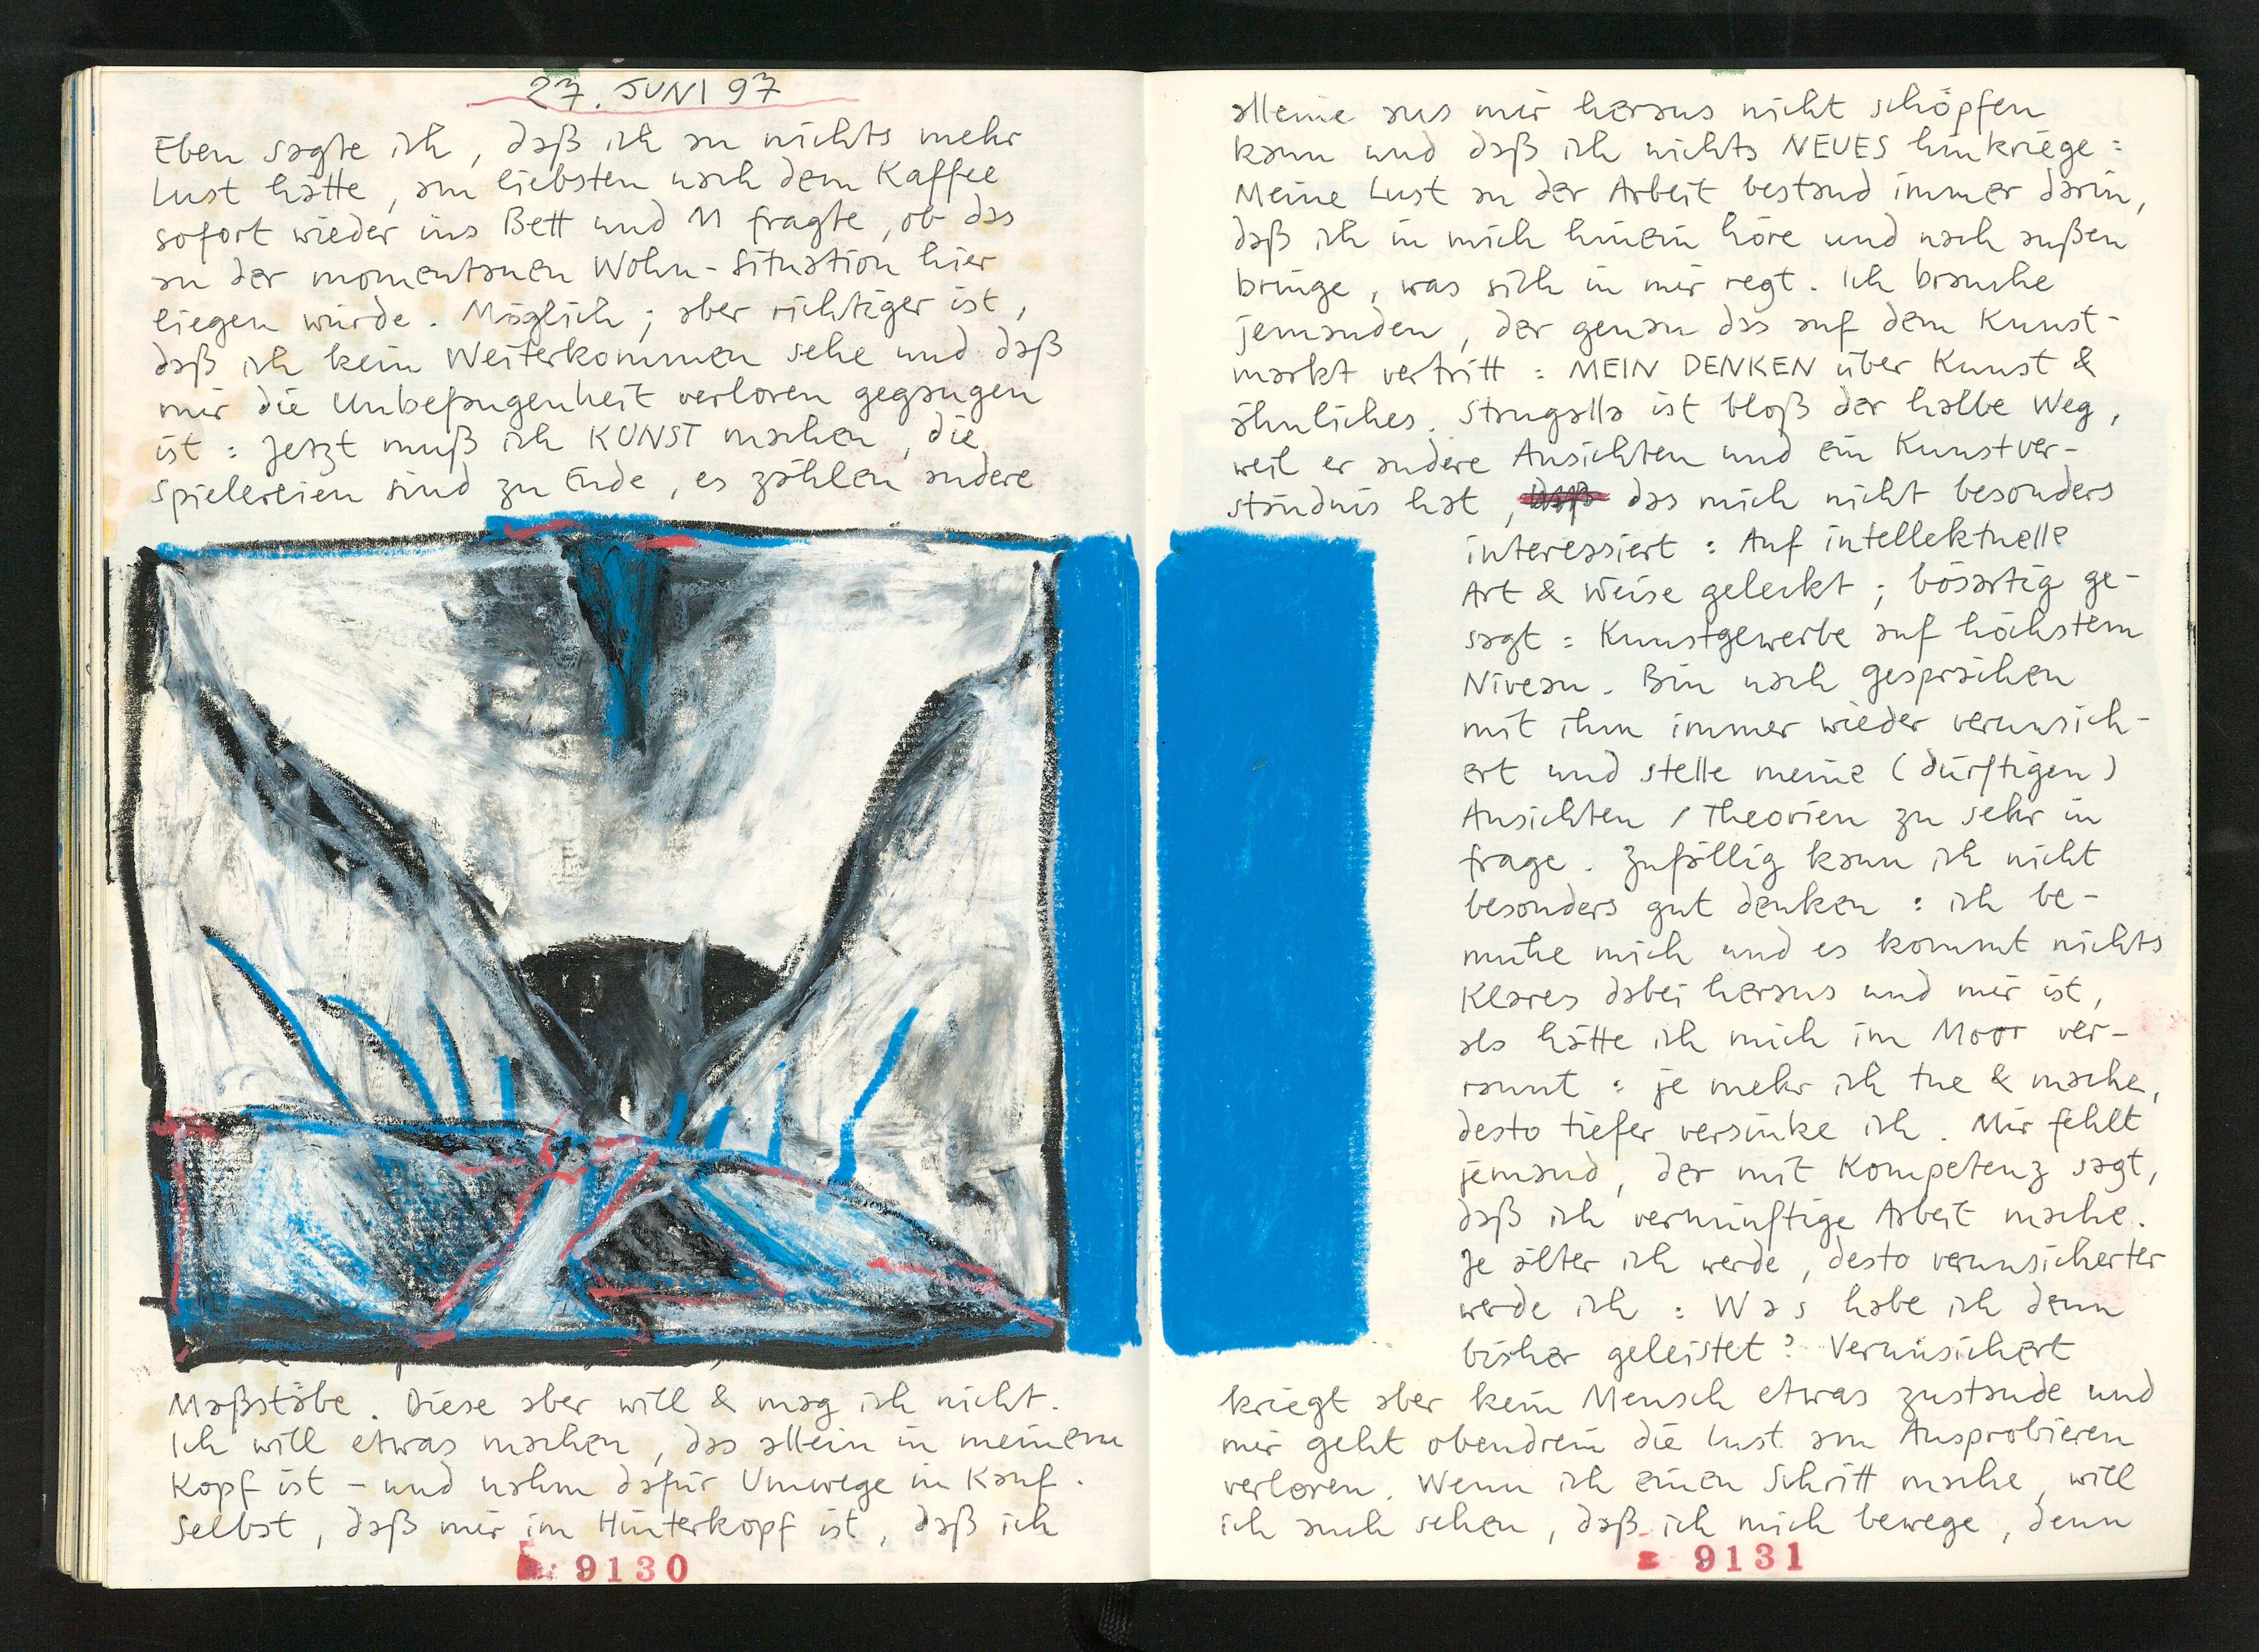 27. JUNI 97
Eben sagte ich, daß ich an nichts mehr
Lust hätte, am liebsten nach dem Kaffee
sofort wieder ins Bett und M fragte, ob das
an der momentanen Wohn-Situation hier
liegen würde. Möglich; aber richtiger ist,
daß ich kein Weiterkommen sehe und daß
mir die Unbefangenheit verloren gegangen
ist: Jetzt muß ich KUNST machen, die
Spielereien sind zu Ende, es zählen andere
Maßstäbe. Diese aber will & mag ich nicht.
Ich will etwas machen, das allein in meinem
Kopf ist – und nahm dafür Umwege in Kauf.
Selbst, daß mir im Hinterkopf ist, daß ich
9130
alleine aus mir heraus nicht schöpfen
kann und daß ich nichts NEUES hinkriege:
Meine Lust an der Arbeit bestand immer darin,
daß ich in mich hinein höre und nach außen
bringe, was sich in mir regt. Ich brauche
jemanden, der genau das auf dem Kunst-
markt vertritt: MEIN DENKEN über Kunst &
ähnliches. Strugalla ist bloß der halbe Weg,
weil er andere Ansichten und ein Kunstver-
ständnis hat, das mich nicht besonders
interessiert: Auf intellektuelle
Art & Weise geleckt; bösartig ge-
sagt: Kunstgewerbe auf höchstem
Niveau. Bin nach Gesprächen
mit ihm immer wieder verunsich-
ert und stelle meine (dürftigen)
Ansichten / Theorien zu sehr in
frage. Zufällig kann ich nicht
besonders gut denken: ich be-
mühe mich und es kommt nichts
Klares dabei heraus und mir ist,
als hätte ich mich im Moor ver-
rannt: je mehr ich tue & mache,
desto tiefer versinke ich. Mir fehlt
jemand, der mit Kompetenz sagt,
daß ich vernünftige Arbeit mache.
Je älter ich werde, desto verunsicherter
werde ich: Was habe ich denn
bisher geleistet? Verunsichert
kriegt aber kein Mensch etwas zustande und
mir geht obendrein die Lust am Ausprobieren
verloren. Wenn ich einen Schritt mache, will
ich auch sehen, daß ich mich bewege, denn
9131